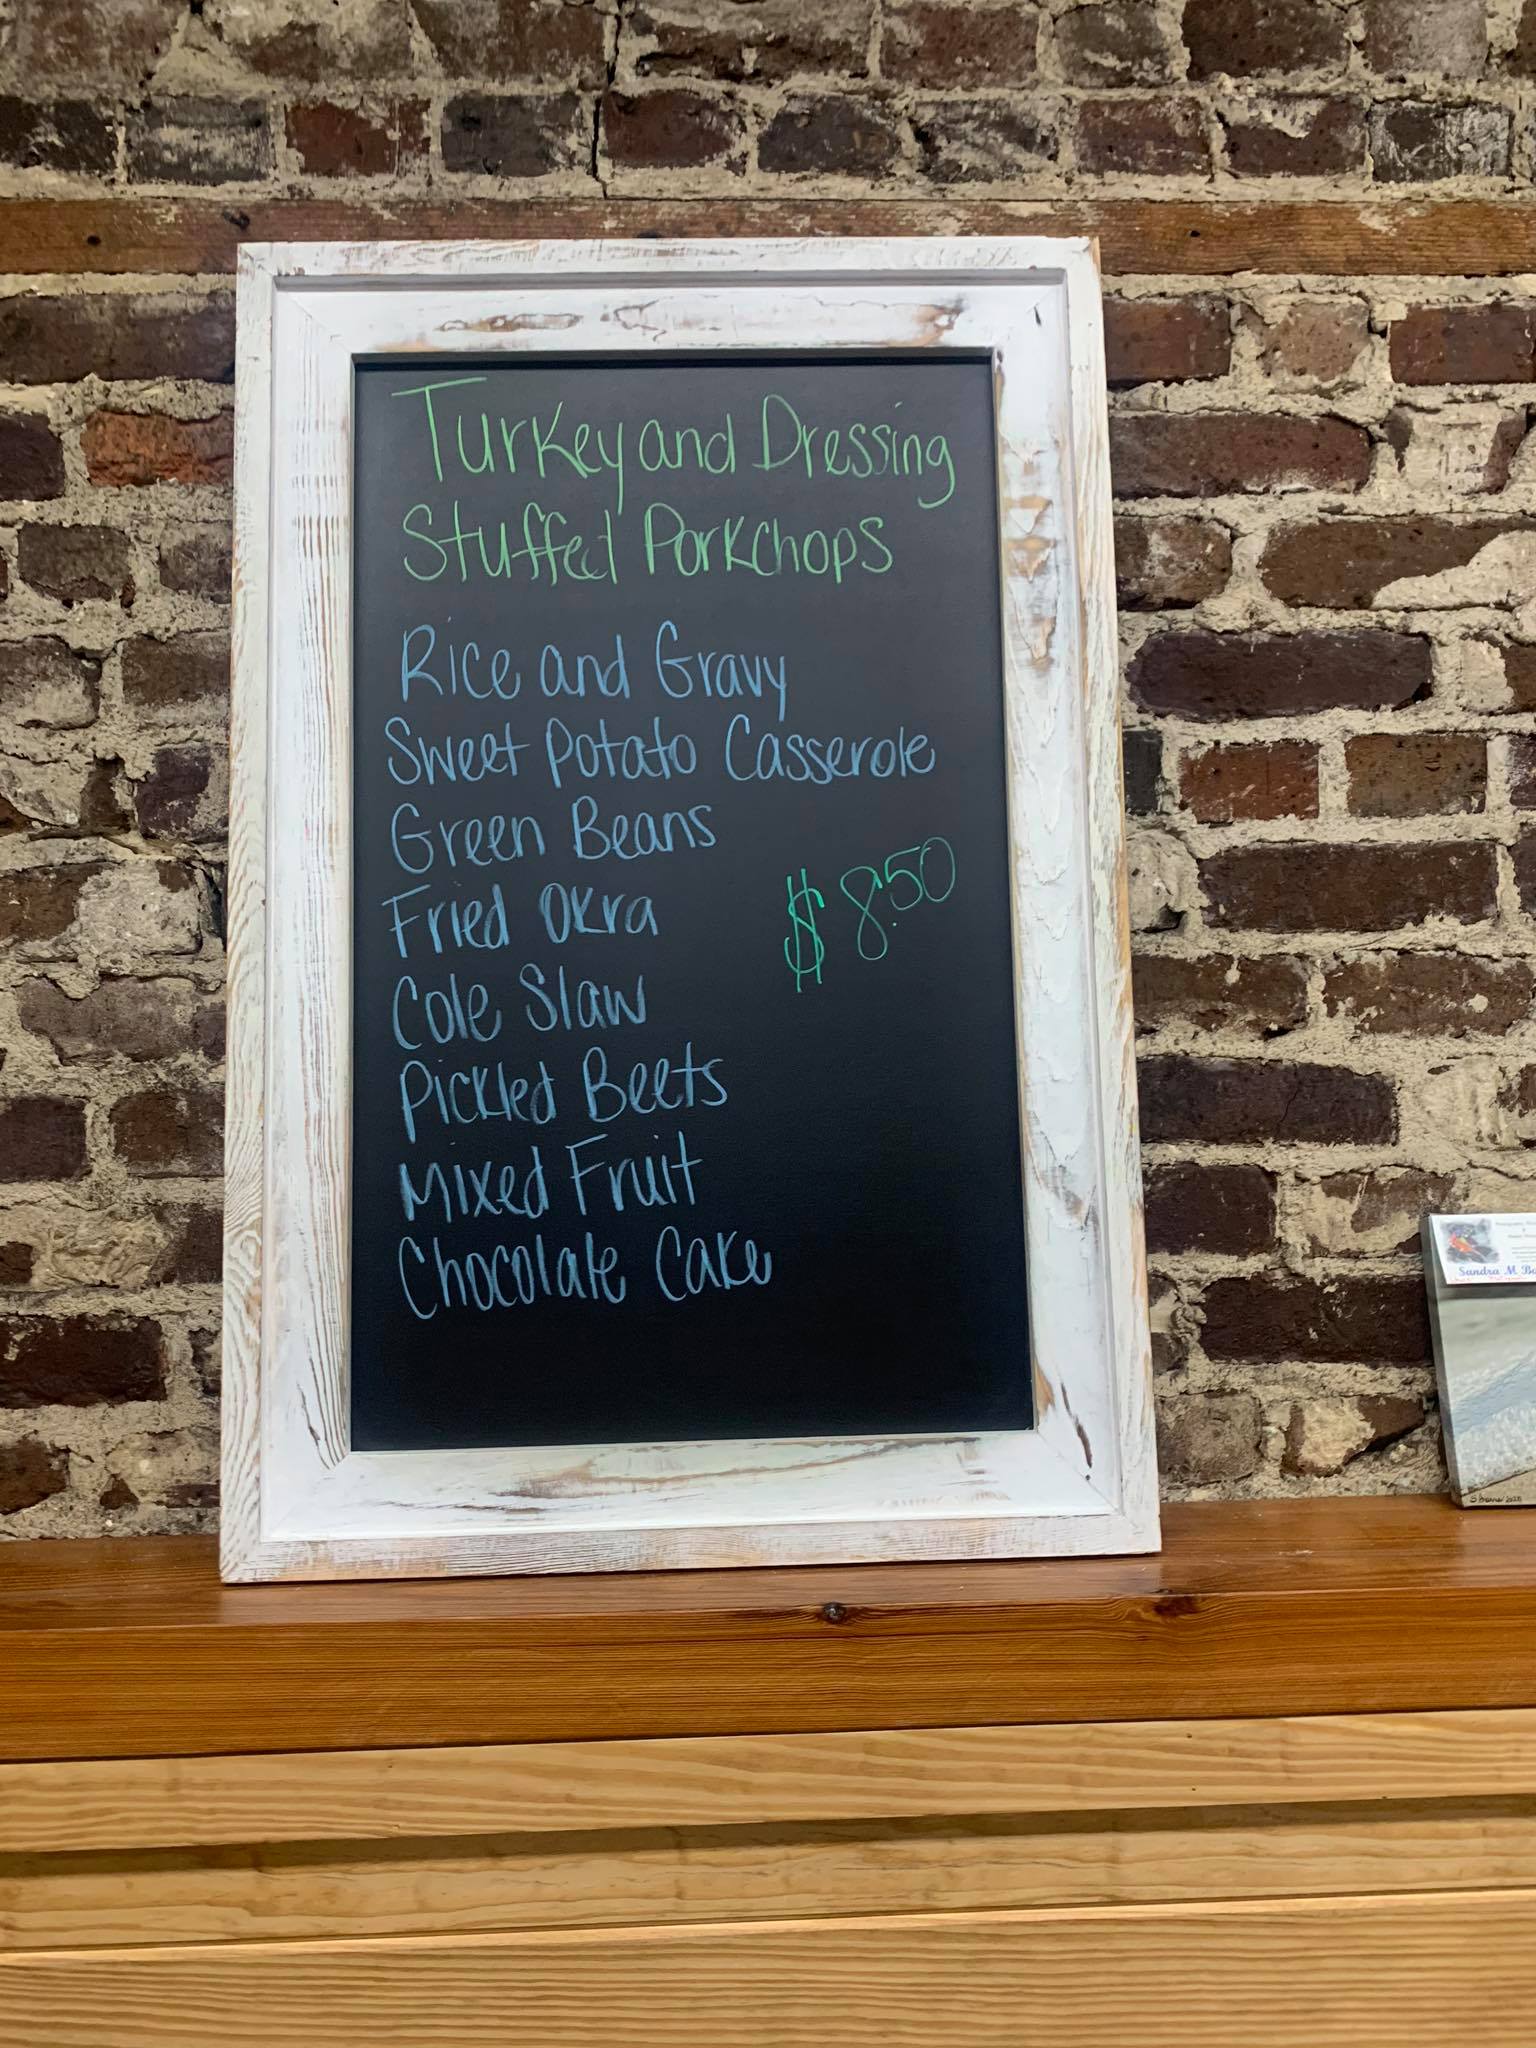 Turkey and Dressing
Stuffed Porkchops
Rice and Gravy
Sweet Potato Casserole
Green Beans
$8.50
Fried Okra
Cole Slaw
Pickled Beets
Mixed Fruit
Chocolate Cake
Sandra M